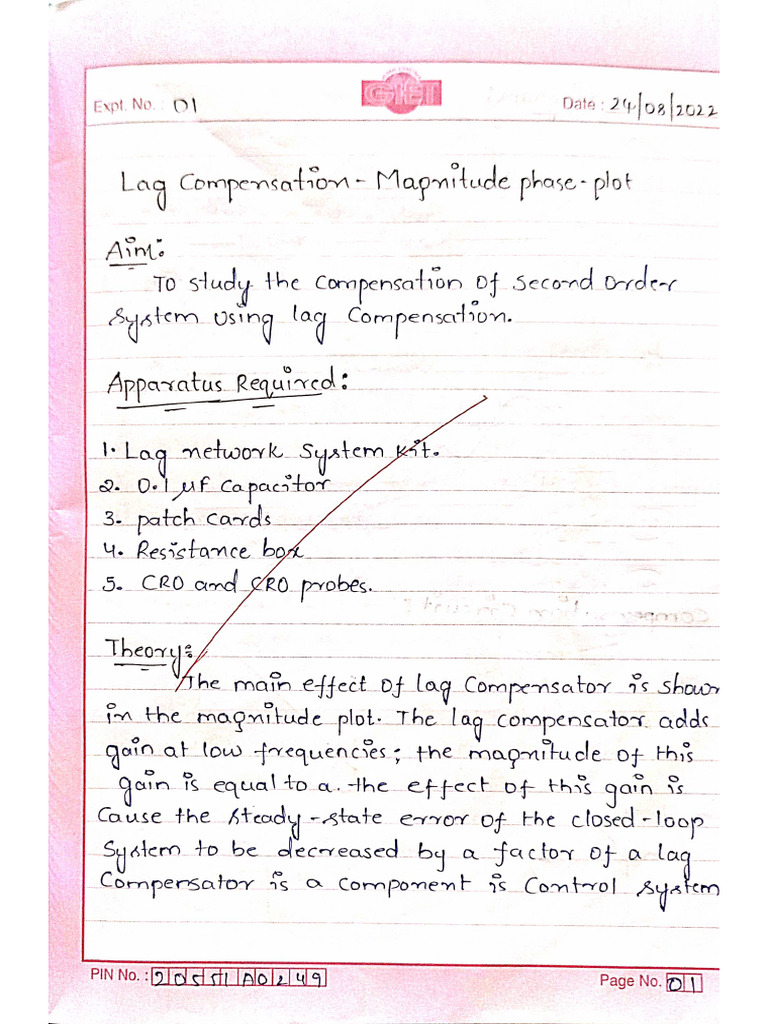 Expt. No. : 01
GIET
Date : 24/08/2022
Lag Compensation - Magnitude phase-plot
Aim:
To study the compensation of second order
system using lag compensation.
Apparatus Required:
1. Lag network system kit.
2. 0.1 μf capacitor
3. patch cards
4. Resistance box
5. CRO and CRO probes.
Theory:
The main effect of lag compensator is shown
in the magnitude plot. The lag compensator adds
gain at low frequencies; the magnitude of this
gain is equal to a. the effect of this gain is
cause the steady-state error of the closed-loop
system to be decreased by a factor of a lag
compensator is a component is control system
PIN No. : 20551A0249
Page No. 01